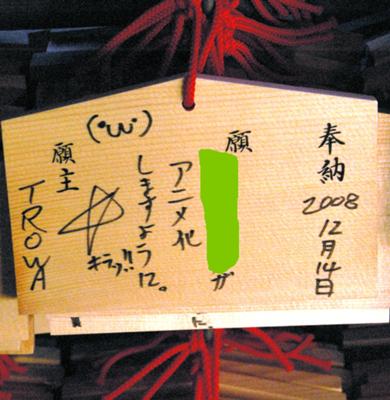 奉納
2008
12月14日
願
が
アニメ化
しますように。
(・ω・)
キラッ!!
願主
TROWA
に